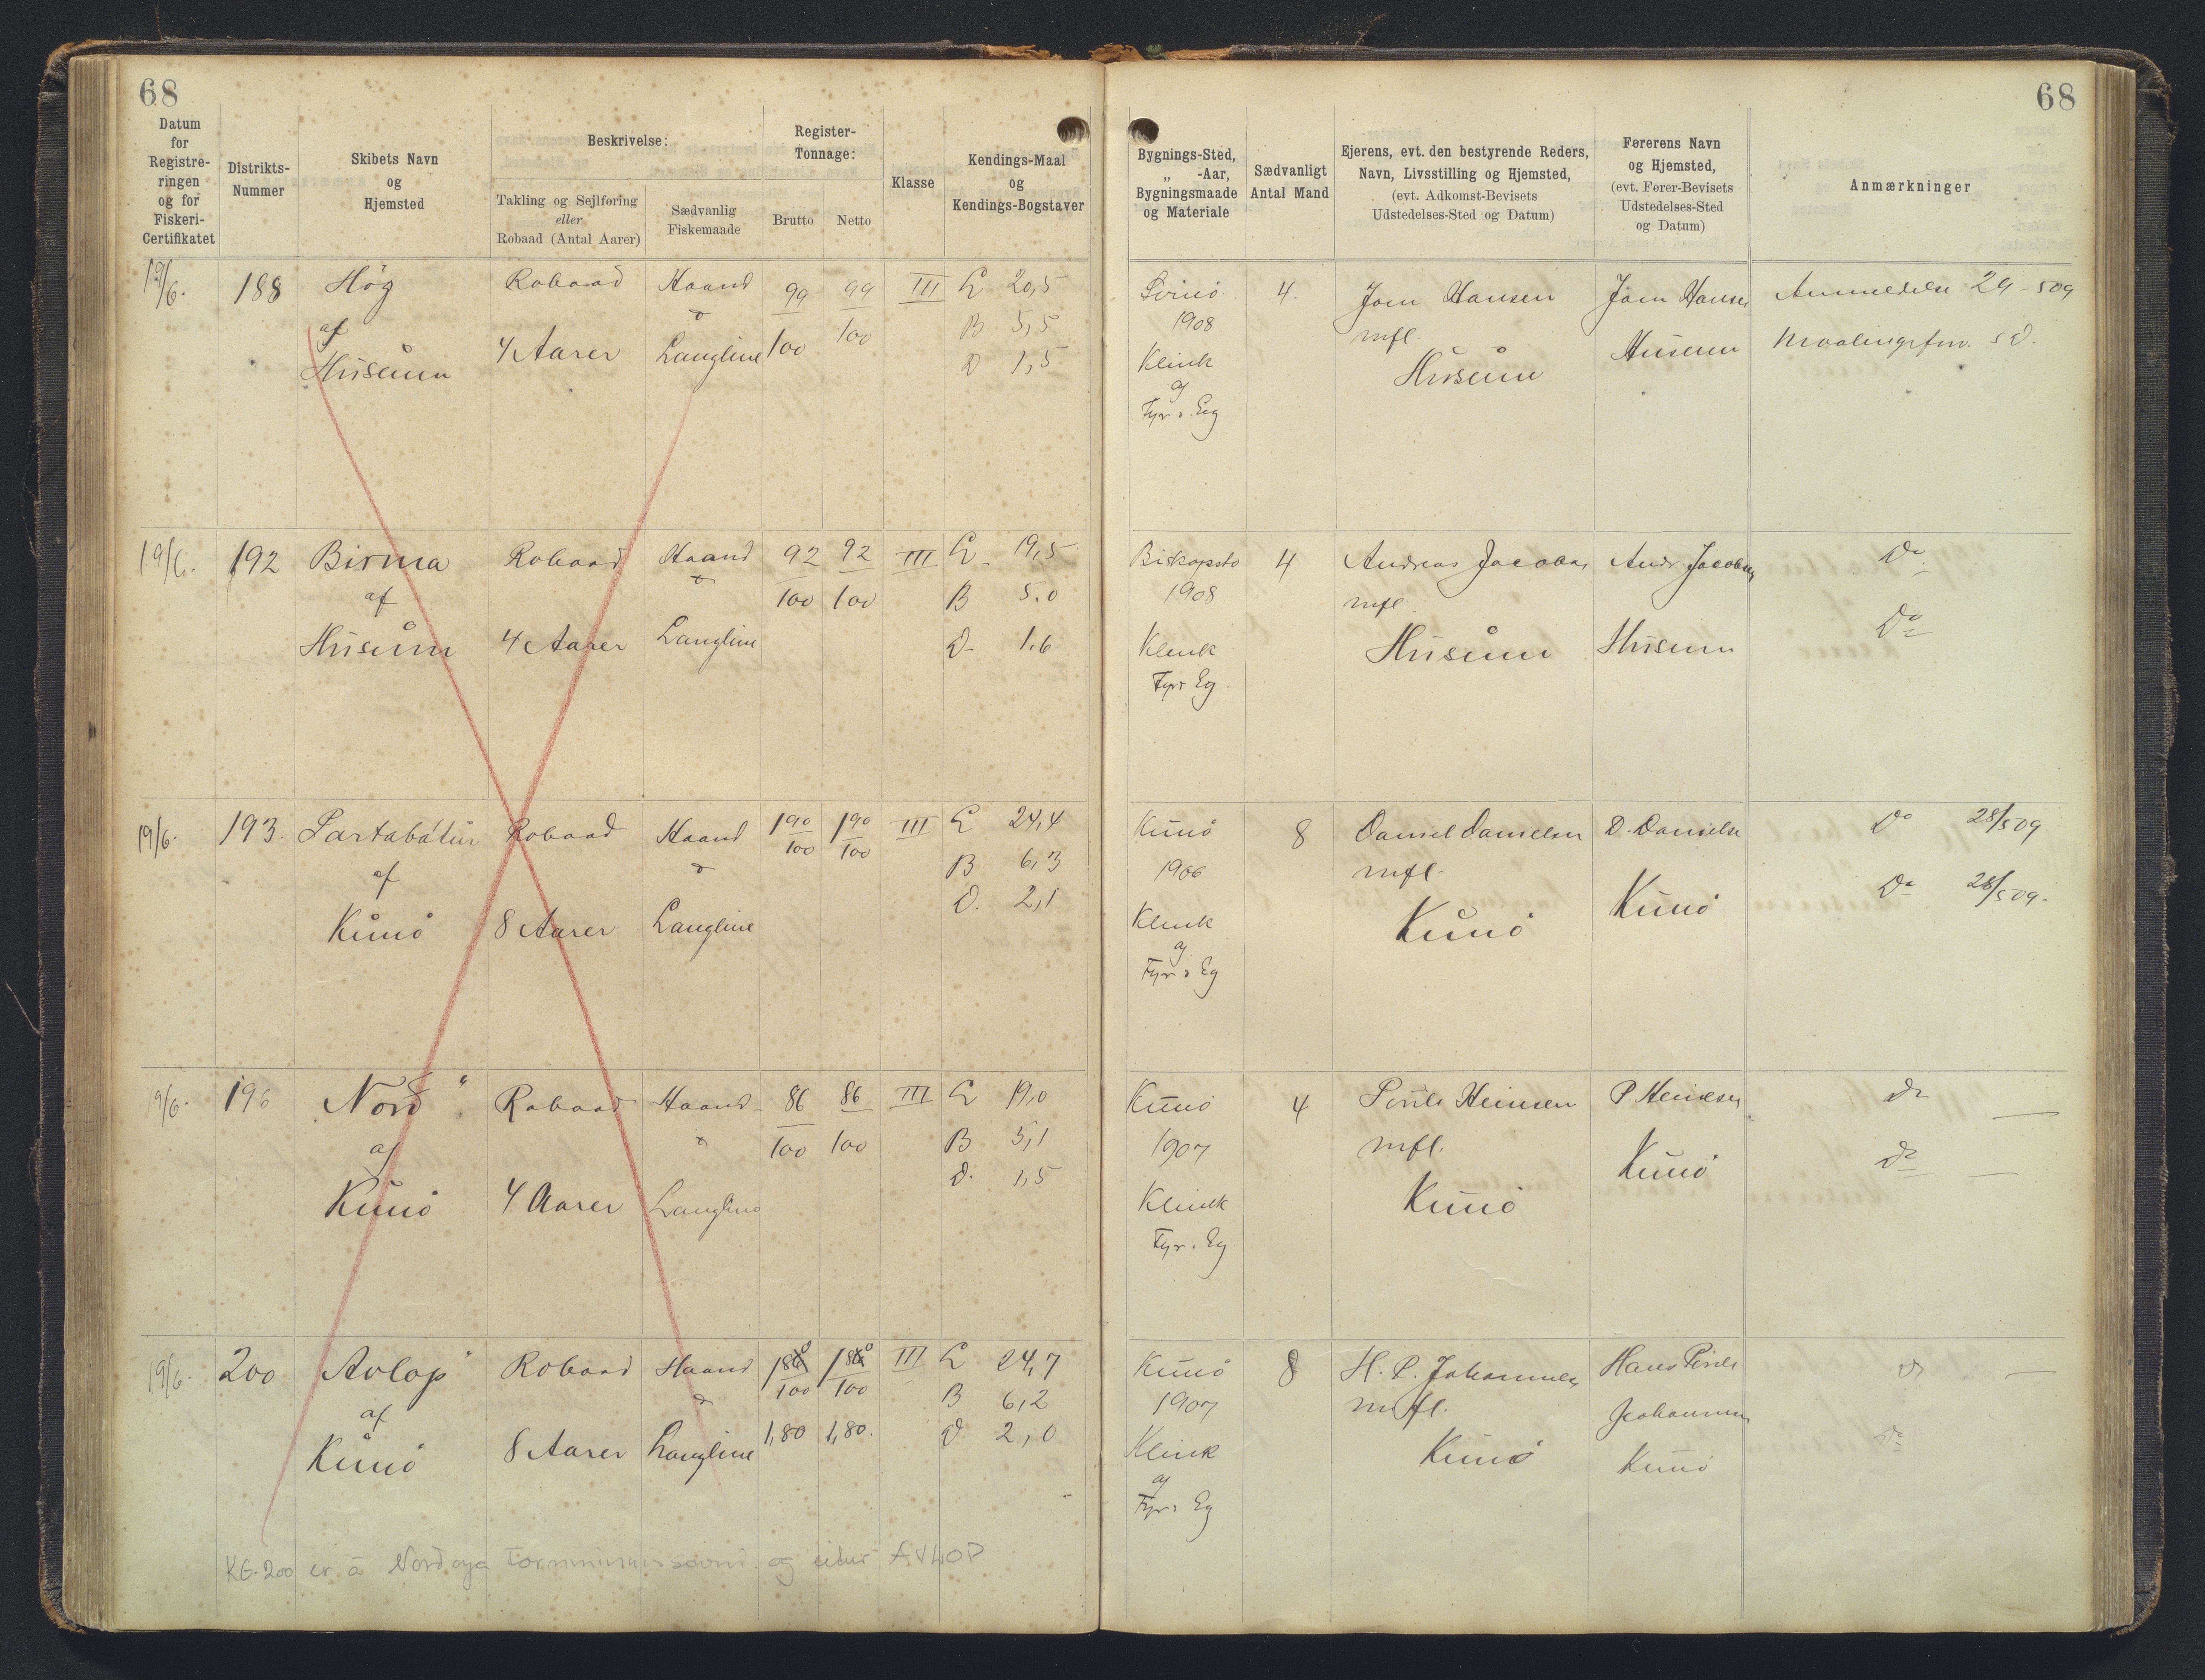 68
68
Datum
for
Registre-
ringen
og for
Fiskeri-
Certifikatet
Distrikts-
Nummer
Skibets Navn
og
Hjemsted
Beskrivelse:
Takling og Sejlføring
eller
Robaad (Antal Aarer)
Sædvanlig
Fiskemaade
Register-
Tonnage:
Brutto
Netto
Klasse
Kendings-Maal
og
Kendings-Bogstaver
Bygnings-Sted,
„ -Aar,
Bygningsmaade
og Materiale
Sædvanligt
Antal Mand
Ejerens, evt. den bestyrende Reders,
Navn, Livsstilling og Hjemsted,
(evt. Adkomst-Bevisets
Udstedelses-Sted og Datum)
Førerens Navn
og Hjemsted,
(evt. Fører-Bevisets
Udstedelses-Sted
og Datum)
Anmærkninger
19/6. 188 Høg Robaad Haand 99 99 III L 20,5
af & 100 100 B 5,5
Husum 4 Aarer Langline D 1,5
Svinø 4. Joen Hansen Joen Hansen Anmeldelse 29-509
1908 mfl.
Klink Husum Husum
af
Fyr & Eg
19/6. 192 Birma Robaad Haand 92 92 III L 19,5
af & 100 100 B 5.0
Husum 4 Aarer Langline D 1.6
Biskopsto 4 Andreas Jacobsen Andr. Jacobsen Do
1908 mfl.
Klink Husum Husum Do
Fyr & Eg.
19/6. 193. Sartabátur Robaad Haand 190 190 III L 24,4
af & 100 100 B 6,3
Kunø 8 Aarer Langline D. 2,1
Kunø 8 Daniel Danielsen D. Danielsen Do 28/509
1906 mfl.
Klink Kunø Kunø Do 28/509.
af
Fyr & Eg
19/6. 196 Nord" Robaad Haand 86 86 III L 19,0
af & 100 100 B 5,1
Kunø 4 Aarer Langline D. 1,5
Kunø 4 Heinesen P Heinesen Do —
1907 mfl.
Klink Kunø Kunø Do —
Fyr & Eg
19/6. 200 Avlop" Robaad Haand III L 24,7
af & 100 100 B 6,2
Kunø 8 Aarer Langline 1,80 1,80. D 2,0
Kunø 8 H. P. Johannesen Hans Do —
1907 mfl. Johannesen
Klink Kunø Kunø Do
af
Fyr & Eg
KG. 200 er á Norðoya Fornminnissavni og eitur AVLOP